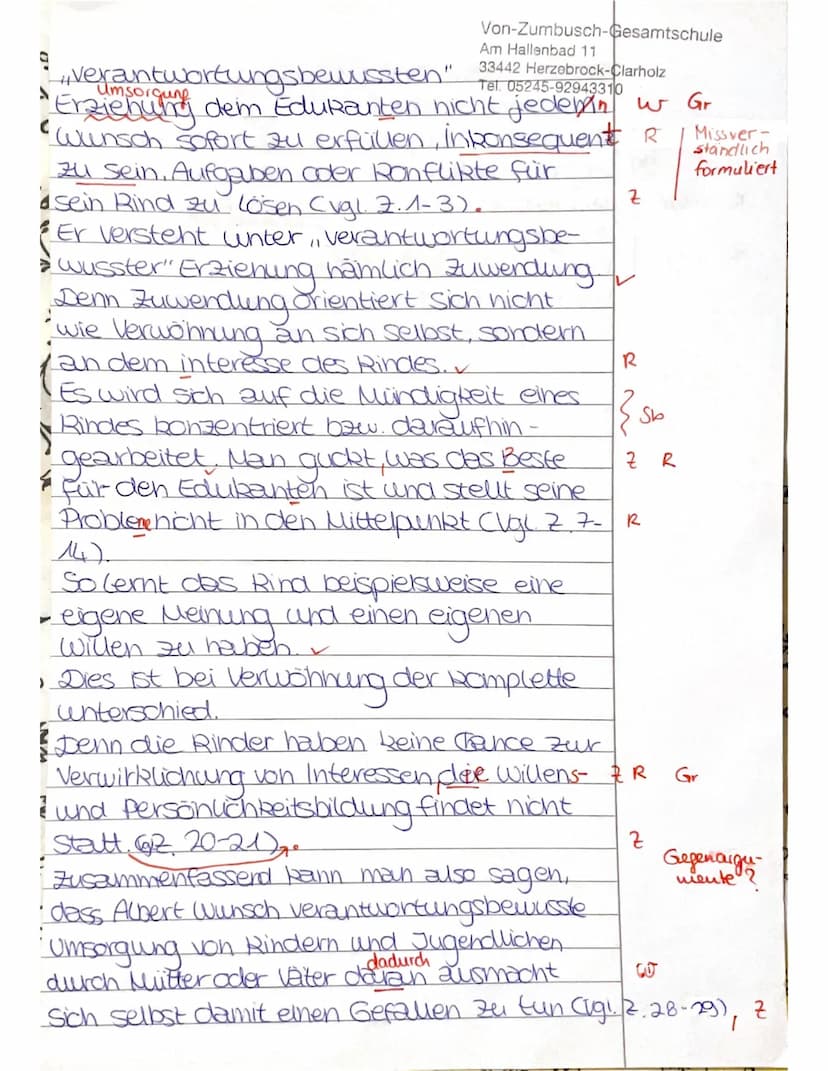 Von-Zumbusch-Gesamtschule
Am Hallenbad 11
33442 Herzebrock-Clarholz
Tel. 05245-92943310
„verantwortungsbewussten"
Umsorgung
Erziehung dem Edukanten nicht jeden W Gr
Wunsch sofort zu erfüllen, inkonsequent R Missver-
ständlich
formuliert
zu sein, Aufgaben oder Konflikte für
sein Kind zu lösen (vgl. Z. 1-3). Z
Er versteht unter „verantwortungsbe-
wusster" Erziehung nämlich Zuwendung. ✓
Denn Zuwendung orientiert sich nicht
wie Verwöhnung an sich selbst, sondern
an dem interesse des Kindes. ✓ R
Es wird sich auf die Mündigkeit eines
Kindes konzentriert bzw. daraufhin- } Sb
gearbeitet. Man guckt, was das Beste Z R
für den Edukanten ist und stellt seine
Probleme nicht in den Mittelpunkt (Vgl. Z. 7- R
14).
So lernt das Kind beispielsweise eine
eigene Meinung und einen eigenen
Willen zu haben. ✓
Dies ist bei Verwöhnung der komplette
unterschied.
Denn die Kinder haben keine Chance zur
Verwirklichung von Interessen, die Willens- Z R Gr
und Persönlichkeitsbildung findet nicht
statt. (Z. 20-21). Z
Gegenargu-
mente?
Zusammenfassend kann man also sagen,
dass Albert Wunsch verantwortungsbewusste
Umsorgung von Kindern und Jugendlichen
dadurch
durch Mütter oder Väter daran ausmacht W
sich selbst damit einen Gefallen zu tun (vgl. Z. 28-29), Z